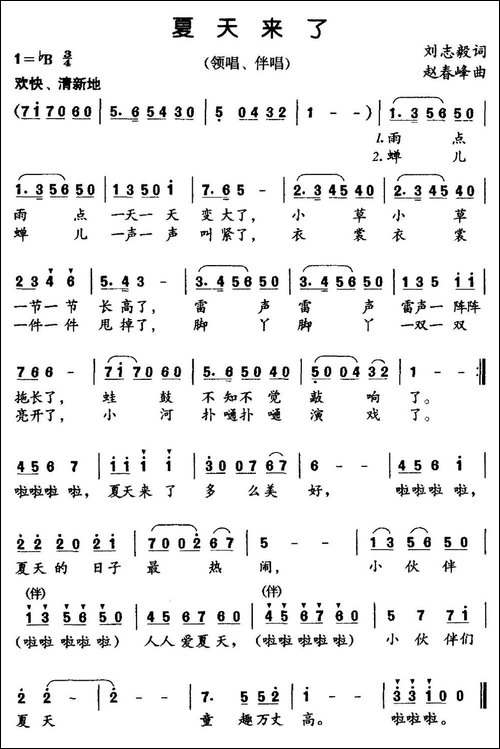 夏天来了
1=♭B 3/4
(领唱、伴唱)
刘志毅词
赵春峰曲
欢快、清新地
(7i 70 60 | 5. 6 54 30 | 5 04 32 | 1 - -) | 1. 3 56 50
1.雨 点
2.蝉 儿
1. 3 56 50 | 13 50 i | 7. 6 5 - | 2. 3 45 40 | 2. 3 45 40
雨 点 一天一 天 变大了, 小 草 小 草
蝉 儿 一声一 声 叫紧了, 衣 裳 衣 裳
2 3 4 6 | 5. 4 3 - | 3. 4 56 50 | 3. 4 56 50 | 13 5 i i
一节一 节 长高了, 雷 声 雷 声 雷声一 阵阵
一件一 件 甩掉了, 脚 丫 脚 丫 一双一 双
7 6 6 - | 7i 70 60 | 5. 6 50 40 | 50 04 32 | 1 - - :‖
拖长了, 蛙 鼓 不知不 觉 敲 响 了。
亮开了, 小 河 扑嗵扑嗵 演 戏 了。
45 6 7 | i i i i | 30 07 67 | 6 - - | 45 6 1
啦啦啦 啦, 夏天来 了 多 么美 好, 啦啦啦 啦,
2 2 20 21 | 70 02 67 | 5 - - | 13 56 50
夏天 的 日子 最 热 闹, 小 伙 伴
(伴) (伴)
i3 56 50 | 45 67 60 | 45 67 60 | 5 7 7i
(啦啦 啦啦 啦) 人人 爱夏 天, (啦啦 啦啦 啦) 小 伙 伴们
2 - 2 | 2 - - | 7. 5 55 2 | i - - | 33 i0 0 ‖
夏 天 童 趣万丈 高。 啦啦啦。